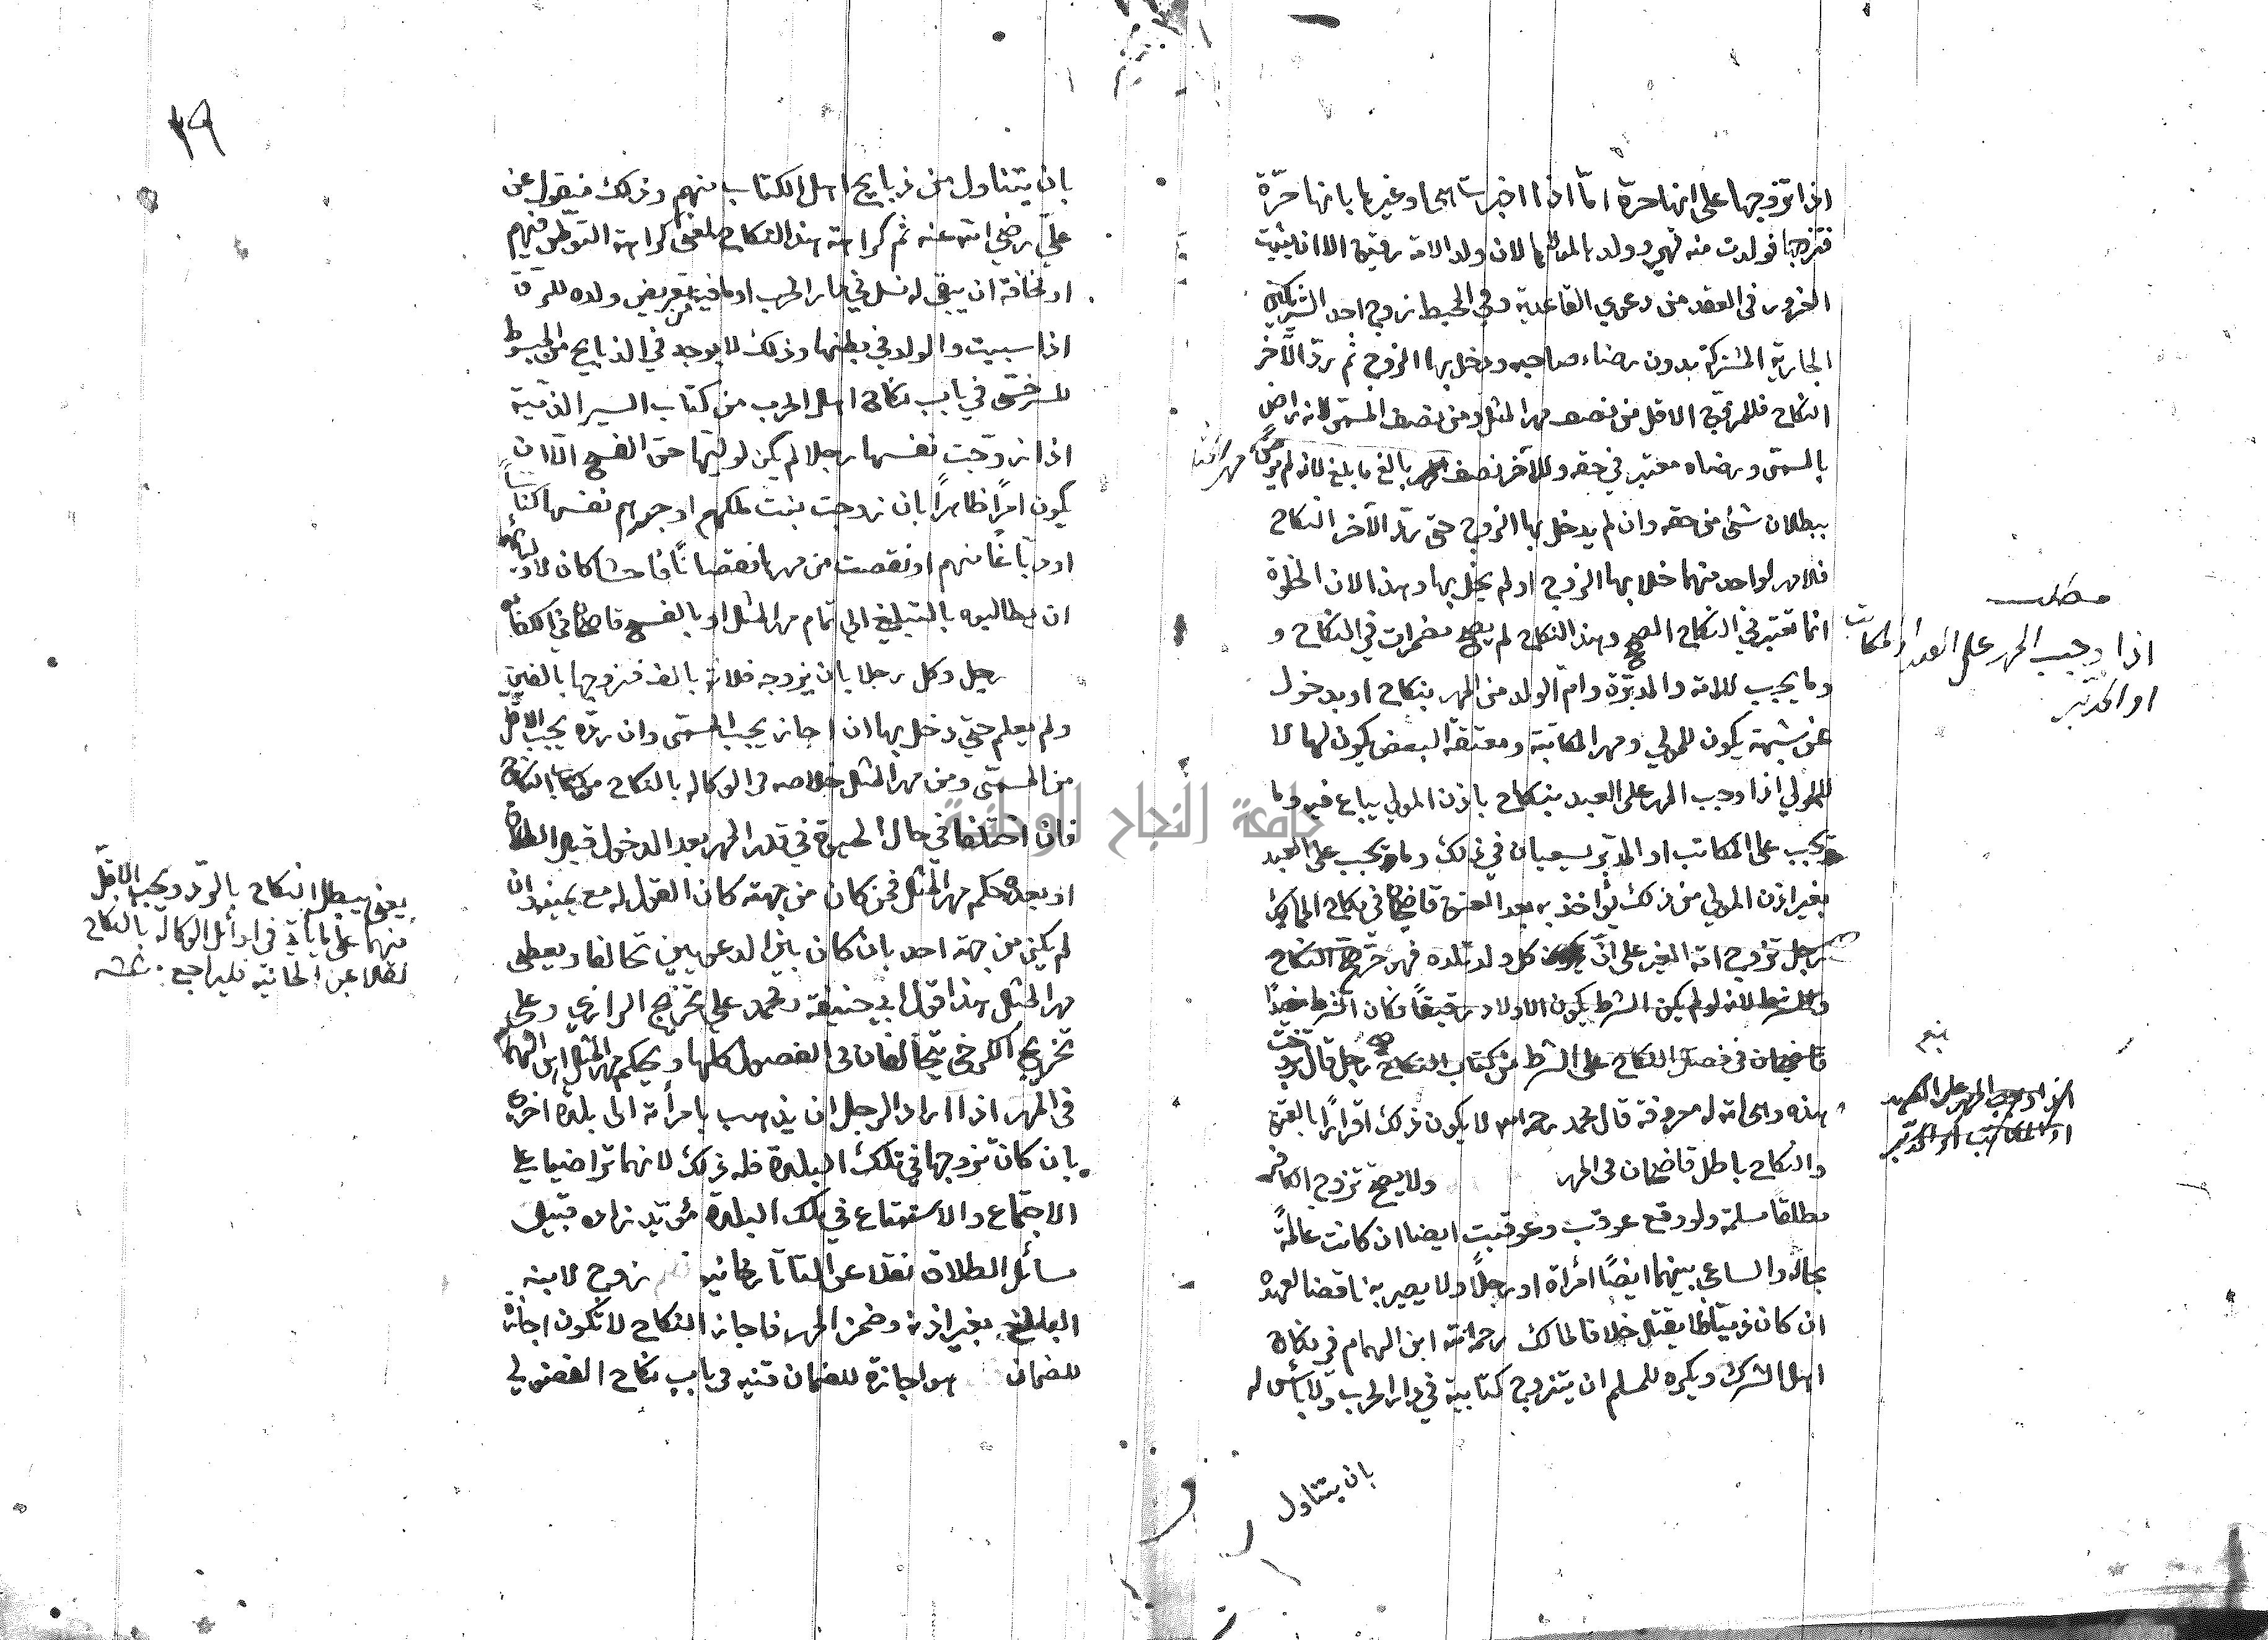 اذا تزوجها على انها حرة امّا اذا اخبرت هى او غيرها بانها حرّة
فتزوجها فولدت منه فهى وولدها لمولاها لان ولد الامة رقيق الا ان يثبت
الغرور فى العقد من دعوى القاعدية وفي المحيط زوج احد الشريكين
الجارية المشتركة بدون رضاء صاحبه ودخل بها الزوج ثم ردّ الآخر
النكاح فللمزوج الاقل من نصف مهر المثل ومن نصف المسمّى لانه راض
بالمسمّى ورضاه معتبر في حقه وللآخر نصف بالغ ما بلغ لانه لم يرض
مهر المثل
ببطلان شئ من حقه وان لم يدخل بها الزوج حتى ردّ الآخر النكاح
فلا مهر لواحد منهما خلا بها الزوج او لم يخل بها وهذا لان الخلوة
انما تعتبر في النكاح الصحيح وهذا النكاح لم يصح مضمرات في النكاح و
وما يجب للامة والمدبّرة وام الولد من المهر بنكاح او بدخول
عن شبهة يكون للمولي ومهر المكاتبة ومعتقة البعض يكون لها لا
للمولي اذا وجب المهر على العبد بنكاح باذن المولي يباع فيه وما
يجب على المكاتب او المدبّر يسعيان في ذلك وما يجب على العبد
بغير اذن المولي من ذلك يؤاخذ به بعد العتق قاضيخان في نكاح المماليك
رجل تزوج امة الغير على انّ كل ولد تلده فهو حرّ صح النكاح
والشرط لانه لو لم يكن الشرط يكون الاولاد رقيقاً وكان الشرط مفيدا
قاضيخان فى فصل النكاح على الشرط من كتاب النكاح رجل قال تزوجت
هذه وهى امة له معروفة قال محمد رحمه الله لا يكون ذلك اقرارًا بالعتق
والنكاح باطل قاضيخان فى المهر ولا يصحّ تزوج الكافر
مطلقا مسلمة ولو وقع عوقب وعوقبت ايضا ان كانت عالمةً
بحاله والساعي بينهما ايضًا امرأة او رجلًا ولا يصير به ناقضا لعهده
ان كان ذميّا فلا يقتل خلافا لمالك رحمه الله ابن الهمام في نكاح
اهل الشرك ويكره للمسلم ان يتزوج كتابية في دار الحرب ولا بأس له
بان يتناول
مطلب
اذا وجب المهر على العبد او المكاتب
او المدبّر
اذا وجب المهر على العبد
او المكاتب او المدبّر
٢٩
بان يتناول من ذبايح اهل الكتاب منهم وذلك منقول عن
عليّ رضي الله عنه ثم كراهة هذا النكاح لمعنى كراهة التوطّن فيهم
او مخافة ان يبقى له نسل في دار الحرب او ما فيه من تعريض ولده للرقّ
اذا سبيت والولد في بطنها وذلك لا يوجد في الذبايح من المبسوط
للسرخسى في باب نكاح اهل الحرب من كتاب السير الذمّية
اذا زوّجت نفسها رجلا لم يكن لوليّها حق الفسخ الّا ان
يكون امرًا ظاهرًا بان زوجت بنت ملكهم او حبرهم نفسها كنّاساً
او دبّاغًا منهم او نقصت من مهرها نقصانًا فاحشا كان لاوليائها
ان يطالبوه بالتبليغ الي تمام مهر المثل او بالفسخ قاضيخان في الكفاءة
رجل وكل رجلا بان يزوجه فلانة بالف فزوجها بالفين
ولم يعلم حتي دخل بها ان اجاز يجب المسمّى وان ردّه يجب الاقلّ
من المسمّى ومن مهر المثل خلاصه فى الوكاله بالنكاح من كتاب النكاح
فان اختلفا في حال الحيوة في قدر المهر بعد الدخول قبل الطلاق
او بعده حكم مهر المثل فمن كان من جهته كان القول له مع يمينه وان
لم يكن من جهة احد بان كان بين الدعويين تحالفا ويعطى
مهر المثل هذا قول ابي حنيفة ومحمد على تخريج الرازي وعلى
تخريج الكرخي يتحالفان فى الفصول كلها ويحكم مهر المثل ابن الهمام
فى المهر اذا اراد الرجل ان يذهب بامرأته الى بلدة اخرى
بان كان تزوجها في تلك البلدة فله ذلك لانهما تراضيا على
الاجتماع والاستمتاع في تلك البلدة مؤيد زاده قبيل
مسائل الطلاق نقلا عن التاتارخانيه زوج لابنه
البالغ بغير اذنه وضمن المهر فاجاز النكاح لا تكون اجازة
للضمان هو اجازة للضمان قنيه فى باب نكاح الفضولي
يعنى يبطل النكاح بالردّ ويجب الاقلّ
منهما على ما يأتي فى اوائل الوكالة بالنكاح
نقلا عن الخانية فليراجع
جامعة النجاح الوطنية